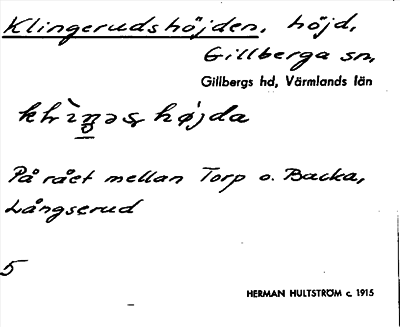 Klingerudshöjden, höjd,
Gillberga sn,
Gillbergs hd, Värmlands län
højda
På rået mellan Torp o. Backa,
Långserud
5
HERMAN HULTSTRÖM c. 1915